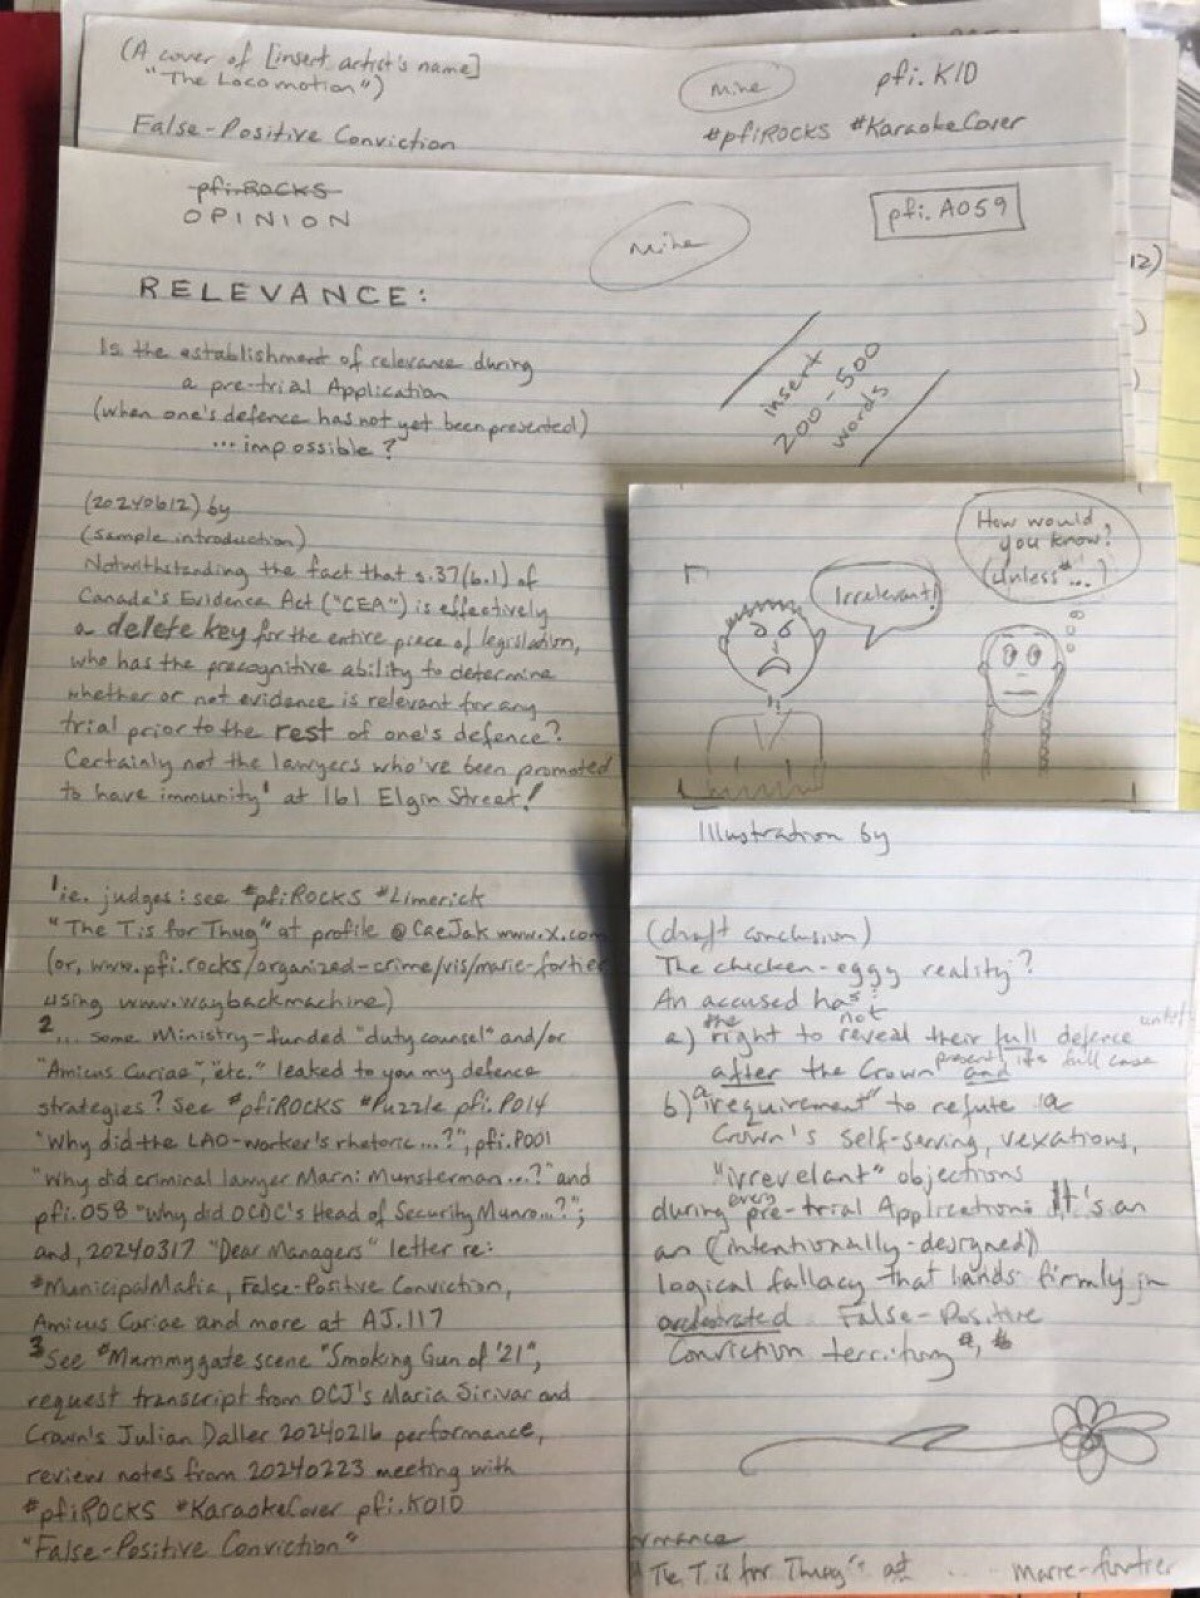 (A cover of [insert artist's name]
"The Locomotion")
Mine
pfi.K10
False-Positive Conviction
#pfiROCKS #KaraokeCover
pfi.ROCKS
OPINION
Mine
pfi.A059
12)
RELEVANCE:
Is the establishment of relevance during
a pre-trial Application
(when one's defence has not yet been presented)
...impossible?
insert
200-500
words
(20240612) by
(sample introduction)
Notwithstanding the fact that s.37(6.1) of
Canada's Evidence Act ("CEA") is effectively
a delete key for the entire piece of legislation,
who has the precognitive ability to determine
whether or not evidence is relevant for any
trial prior to the rest of one's defence?
Certainly not the lawyers who've been promoted
to have immunity¹ at 161 Elgin Street!
Irrelevant!
How would
you know?
(Unless²...)
Illustration by
¹ie. judges: see #pfiROCKS #Limerick
"The T is for Thug" at profile @CaeJak www.x.com
(or, www.pfi.rocks/organized-crime/vis/marie-fortier
using www.waybackmachine)
2... some Ministry-funded "duty counsel" and/or
"Amicus Curiae", "etc." leaked to you my defence
strategies? See #pfiROCKS #Puzzle pfi.P014
"Why did the LAO-worker's rhetoric...?", pfi.P001
"Why did criminal lawyer Marni Munsterman...?" and
pfi.058 "Why did OCDC's Head of Security Munro...?";
and, 20240317 "Dear Managers" letter re:
#MunicipalMafia, False-Positive Conviction,
Amicus Curiae and more at AJ.117
3See #Mummygate scene "Smoking Gun of '21",
request transcript from OCJ's Maria Sirivar and
Crown's Julian Daller 20240216 performance,
review notes from 20240223 meeting with
#pfiROCKS #KaraokeCover pfi.K010
"False-Positive Conviction"
(draft conclusion)
The chicken-eggy reality?
An accused has:
a) the right to not reveal their full defence until
after the Crown presents its full case and
b) a "requirement" to refute a
Crown's self-serving, vexatious,
"irrevelant" objections
during every pre-trial Application: It's an
an (intentionally-designed)
logical fallacy that lands firmly in
orchestrated False-Positive
Conviction territory
rmance
"The T is for Thug" at ... marie-fortier